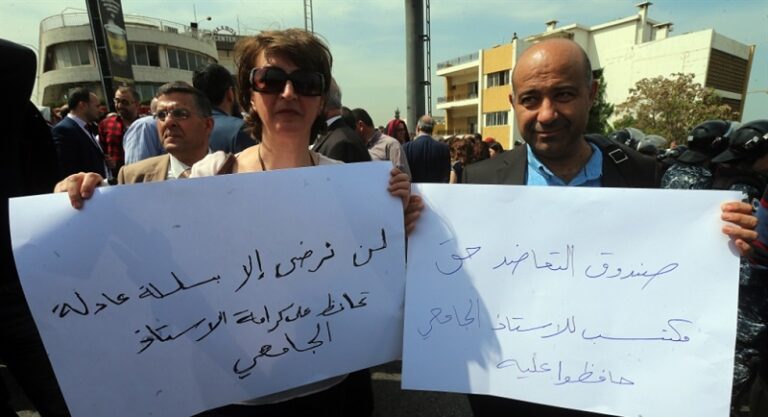 لن نرضى إلا بسلسلة عادلة
تحافظ على كرامة الاستاذ
الجامعي
صندوق التعاضد حق
مكتسب للاستاذ الجامعي
حافظوا عليه